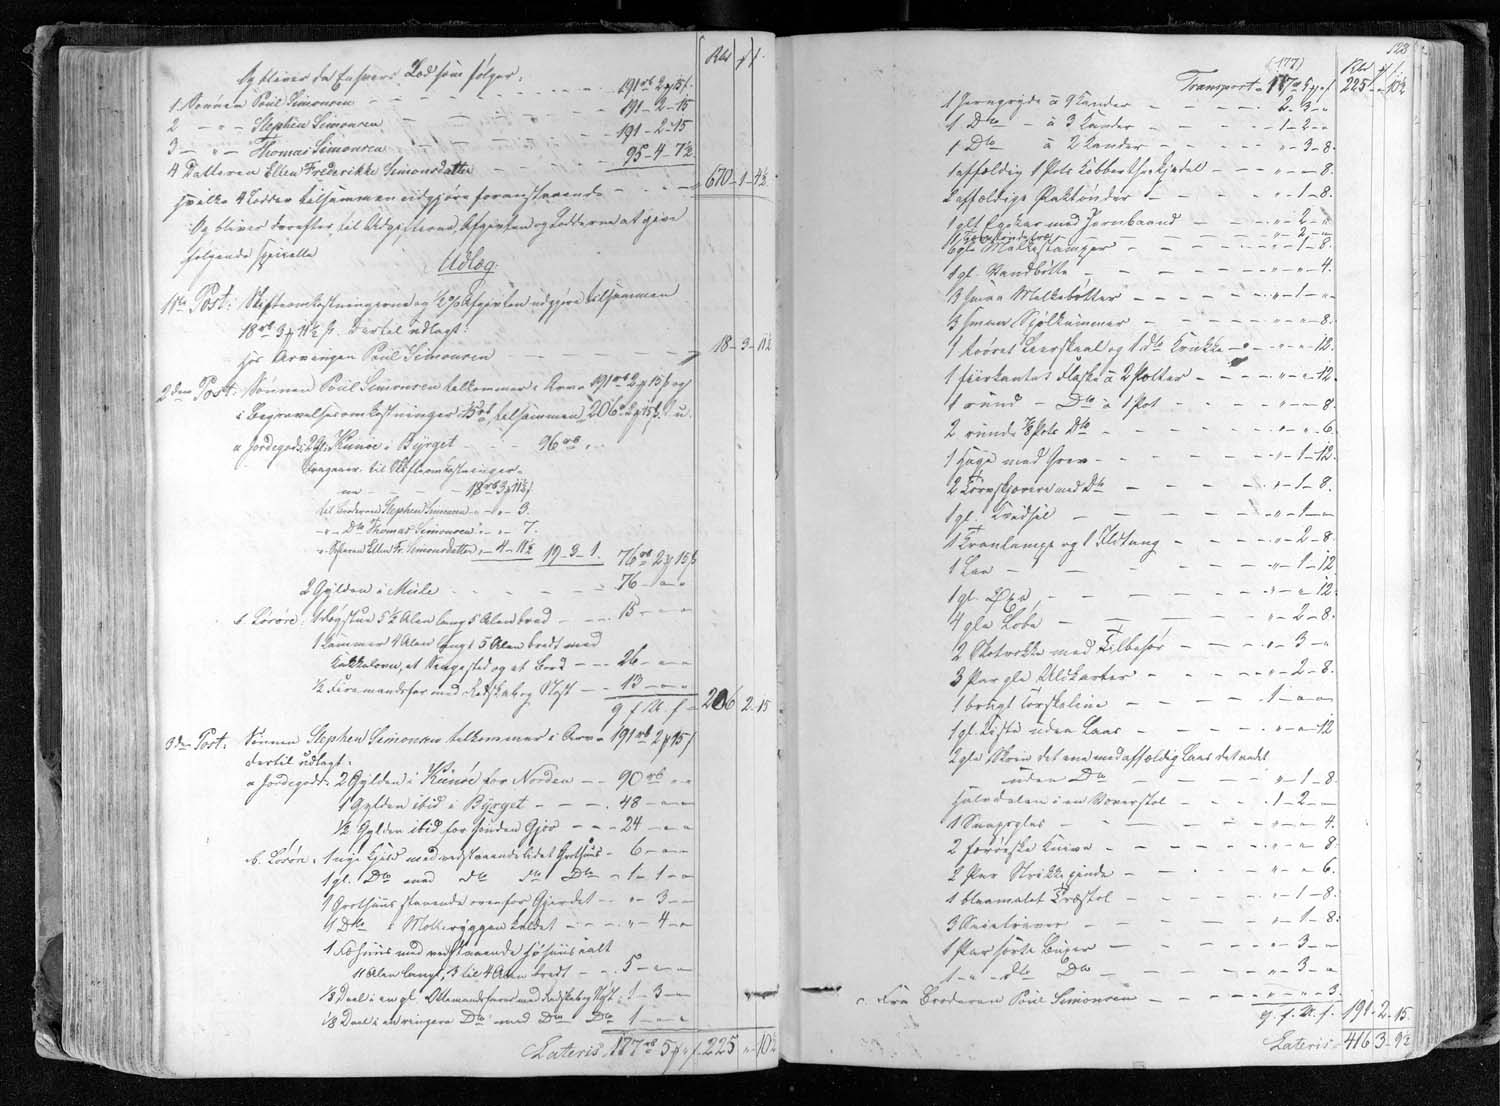 Rbd ₰ ß
Og bliver da Enhvers Lod som følger:
1. Sønnen Poul Simonsen - - - 191 rb 2 ₰ 15 ß
2 - " - Stephen Simonsen - - - 191 - 2 - 15
3 - " - Thomas Simonsen - - - 191 - 2 - 15
4 Datteren Ellen Frederikke Simonsdatter - - 95 - 4 - 7½
hvilke 4 Lodder tilsammen udgjøre foranstaaende - - - 670 - 1 - 4½
Og bliver derefter til Udgifterne, Afgiften og Lodderne at give
følgende specielle
Udlæg:
1ste Post: Skifteomkostningerne og ½ % Afgiften udgjøre tilsammen
18 rb 3 ₰ 11½ ß. Dertil udlagt:
hos Arvingen Poul Simonsen - - - 18 - 3 - 11½
2den Post: Sønnen Poul Simonsen tilkommer i Arv 191 rb 2 ₰ 15 ß og
i Begravelsesomkostninger 15 rb, tilsammen 206 rb 2 ₰ 15 ß.
a Jordegods: 2 Gl. i Kunøe i Byrget - - - 96 rb " "
fragaaer til Skifteomkostninger-
ne - - - 18 rb 3 ₰ 11½ ß
til Broderen Stephen Simonsen " - " - 3.
- " - Dto Thomas Simonsen " - " - 7.
" Søsteren Ellen Fr. Simonsdatter " - 4 - 11½ 19 - 3 - 1. 76 rb 2 ₰ 15 ß
2 Gylden i Mule - - - - 76 - " - "
b. Løsøre: 1 Røgstue 5½ Alen lang 5 Alen bred - - 15 - " - "
1 Kammer 4 Alen langt 5 Alen bredt med
Kakkelovn, et Sengested og et Bord - - - 26 - " - "
½ Firemandsfar med Redskab og Nøst - - 13 - " - "
g f U. f. 206 2 - 15
3die Post: Sønnen Stephen Simonsen tilkommer i Arv 191 rb 2 ₰ 15 ß
dertil udlagt:
a Jordegods: 2 Gylden i Kunøe for Norden - - 90 rb " "
1 Gylden ibid i Byrget - - - 48 - " - "
½ Gylden ibid for Sønden Gjov - - - 24 - " - "
b. Løsøre: 1 nye Hjeld med vedstaaende lidet Grothuus - 6 - " - "
1 gl. Dto med dto dto Dto - 1 - 1 - "
1 Grothuus staaende ovenfor Gjerdet - " - 3 - "
1 Dto i - " - 4 - "
1 Fæhuus med vedstaaende Høhuus ialt
11 Alen langt, 3 til 4 Alen bredt - - 5 - " - "
1/8 Deel i en gl. Ottemandsfarer med Redskab og Nøst: 1 - 3 - "
1/8 Deel i en ringere Dto med Dto Dto 1 - " - "
Lateris 177 rb 5 ₰ " ß 225 " 10½
123
(177)
Rbd ₰ ß
Transport 177 rb 5 ₰ " ß 225 " 10½
1 Jerngryde à 9 Kander - - - 2 - 3 - "
1 Dto - à 3 Kander - - - 1 - 2 - "
1 Dto à 2 Kander - - - " - 3 - 8.
1 affældig 1 Pots Kobberthekjedel - - " - " - 8.
2 affældige Baktønder - - - " - 1 - 8.
1 gl. Egekar med Jernbaand - - - " - 2 - "
- - " - 2 - "
6 gle Malkestamper - - - " - 1 - 8.
1 gl. Vandbøtte - - - " - " - 4.
3 smaa Melkebøtter - - - " - 1 - "
3 smaae - - - " - " - 8.
1 Leerskaal og 1 dto Krukke - - " - " - 12.
1 fiirkantet Flaske à 2 Potter - - - " - " - 12.
1 rund - Dto à 1 Pot - - - " - " - 8.
2 runde Pots Dto - - - " - " - 6.
1 Hage med Grev - - - " - 1 - 12.
2 Tørvskjærere med Dto - - - " - 1 - 8.
1 gl. - - - " - 1 - "
1 Tranlampe og 1 Ildtang - - - " - 2 - 8.
1 Lee - - - " - 1 - 12
1 gl. Øxe - - - " - " - 12.
4 gle - - - " - 2 - 8.
2 Skotrokke med Tilbehør - - - " - 3 - "
3 Par gle Uldkarter - - - " - 2 - 8.
1 brugt Torskeline - - - 1 - " - "
1 gl. Kiste uden Laas - - - " - " - 12
2 gle Skrin det ene med affældig Laas det andet
uden Dto - - - " - 1 - 8.
Halvdelen i en Væverstol - - - 1 - 2 - "
1 Snapsglas - - - " - " - 4.
2 færøeske Knive - - - " - " - 8
2 Par Strikkepinde - - - " - " - 6.
1 blaamalet Træstol - - - " - 1 - 8.
3 - - - " - 1 - 8.
1 Par sorte Buxer - - - " - 3 - "
1 - " - dto Dto - - - " - 3 - "
c. Fra Broderen Poul Simonsen - - - " - " - 3
g. f. U. f. 191 - 2 - 15.
Lateris 416 3 - 9½